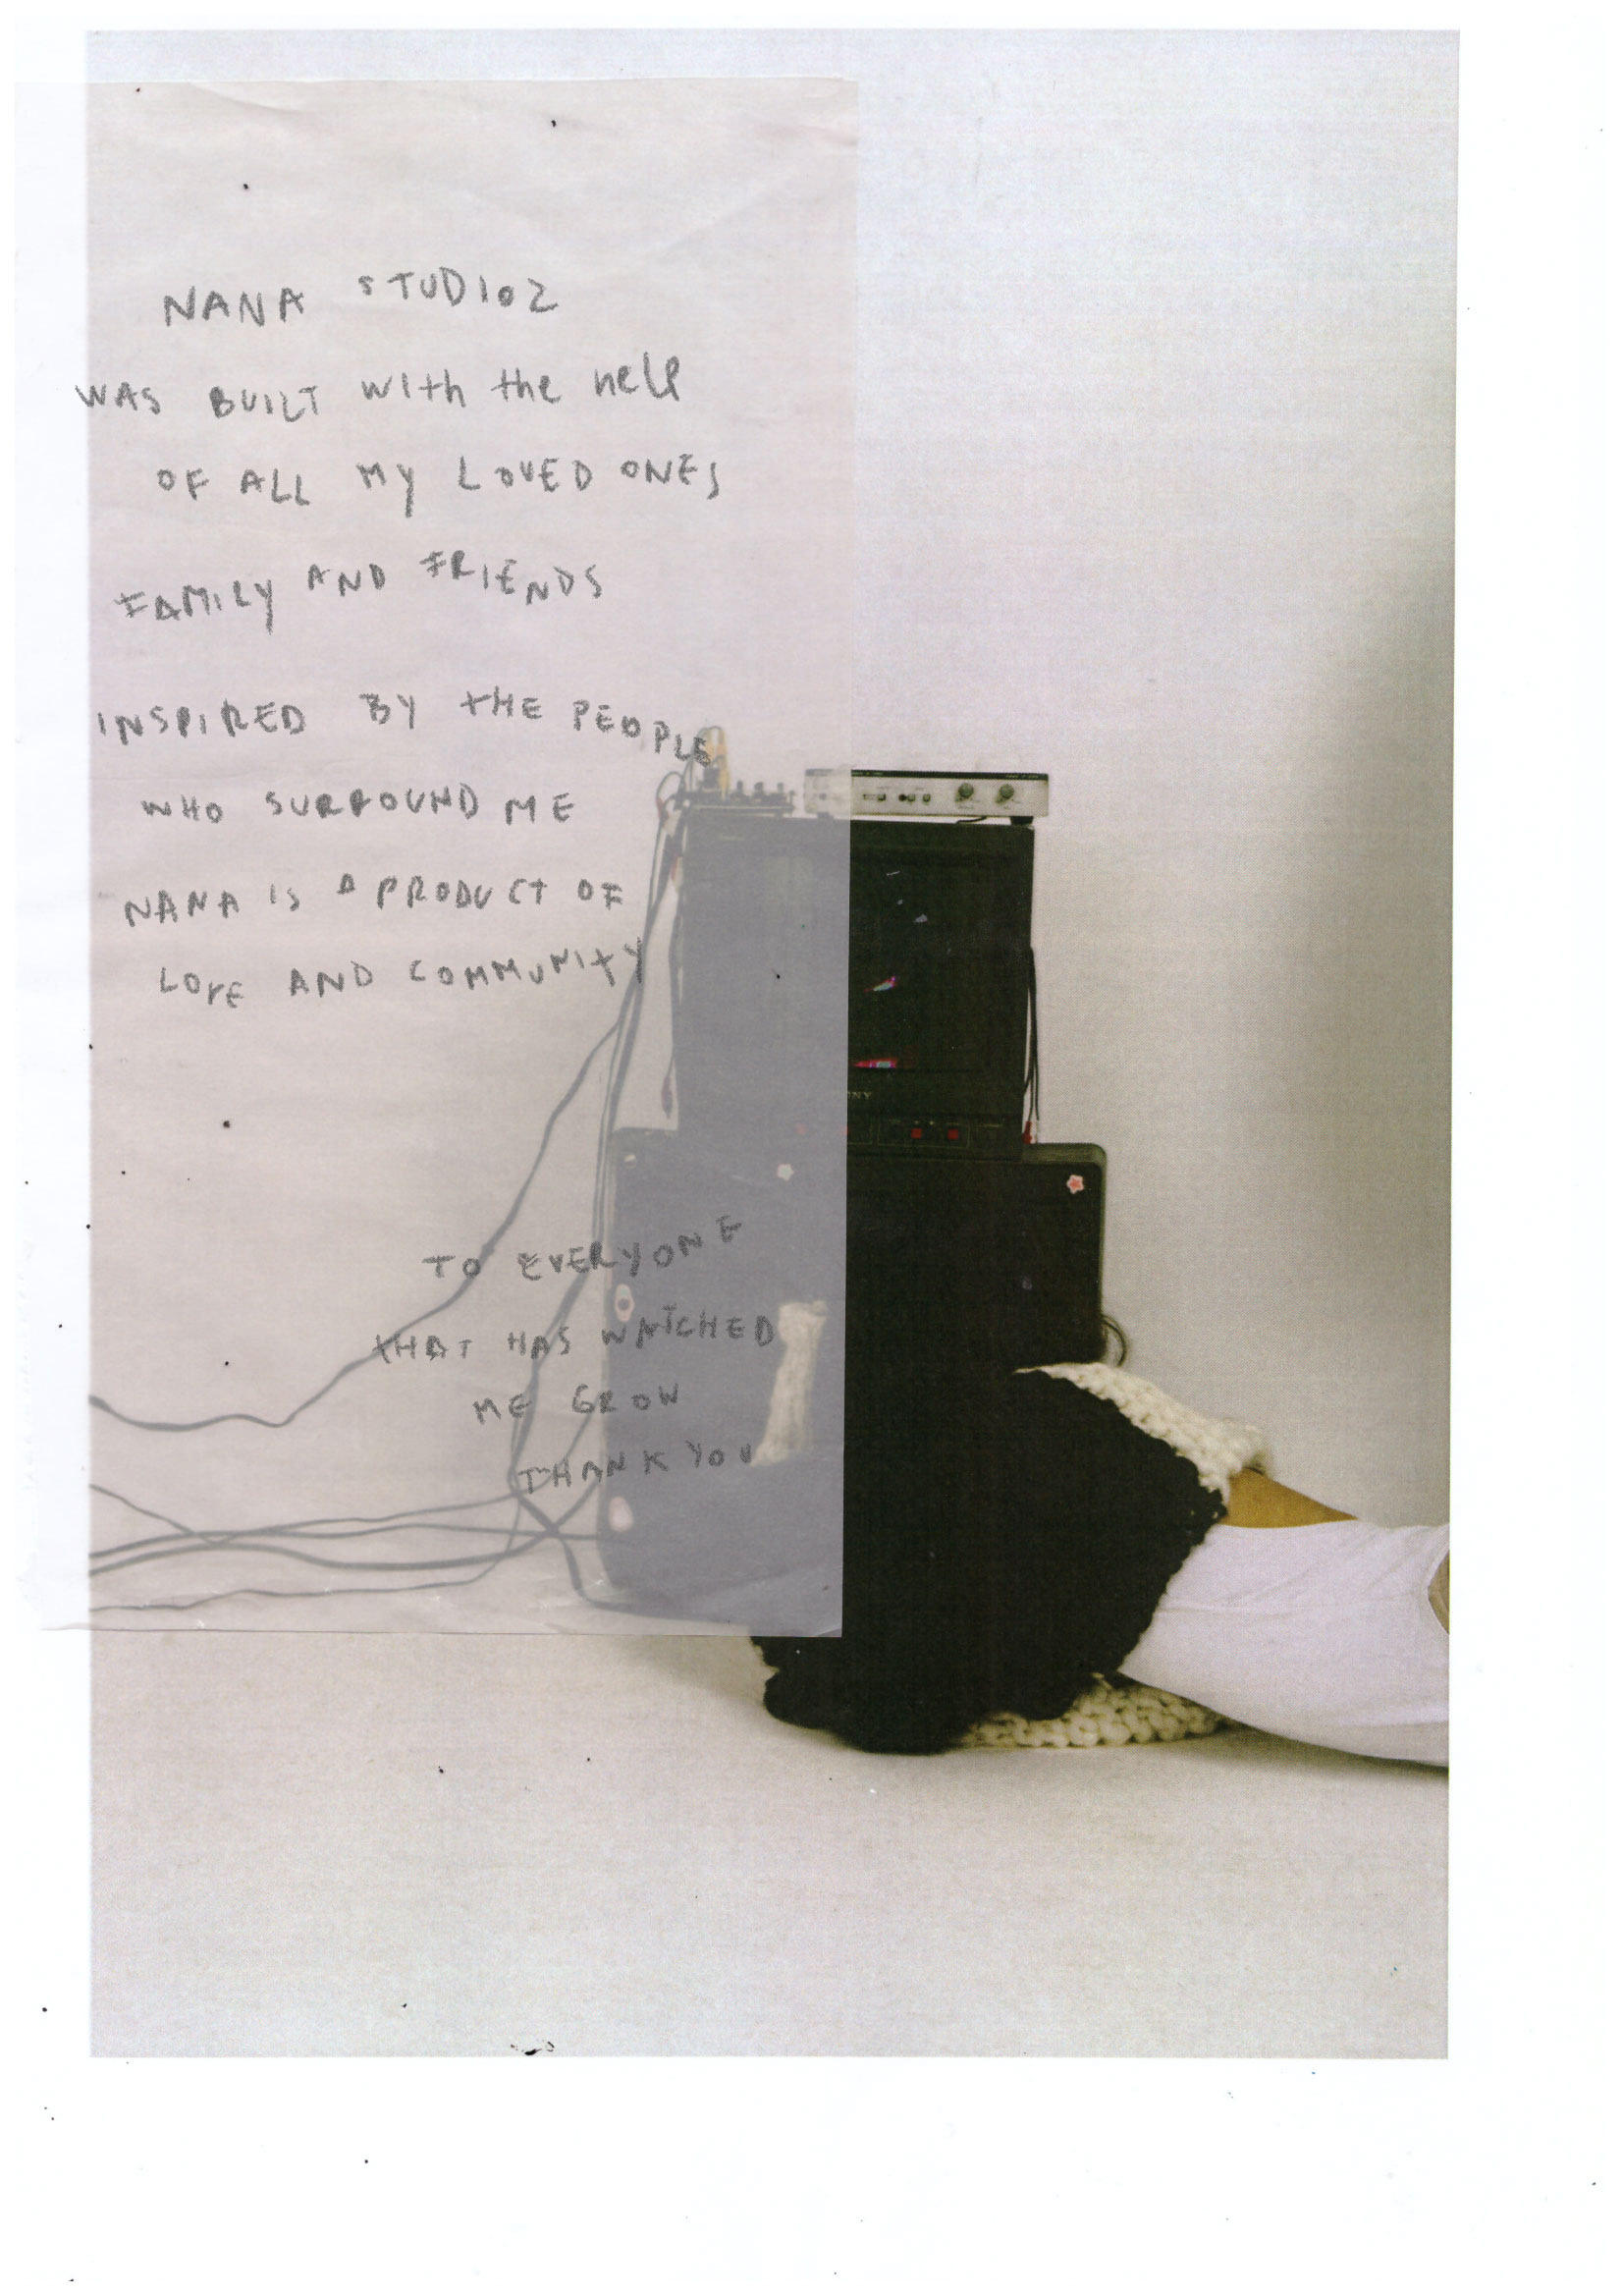 NANA STUDIOZ
WAS BUILT With the help
OF ALL MY LOVED ONES
FAMILY AND FRIENDS
INSPIRED BY tHE PEOPLE
WHO SURROUND ME
NANA IS A PRODUCT OF
LOVE AND COMMUNITY
TO EVERYONE
tHAT HAS WATCHED
ME GROW
THANK YOU